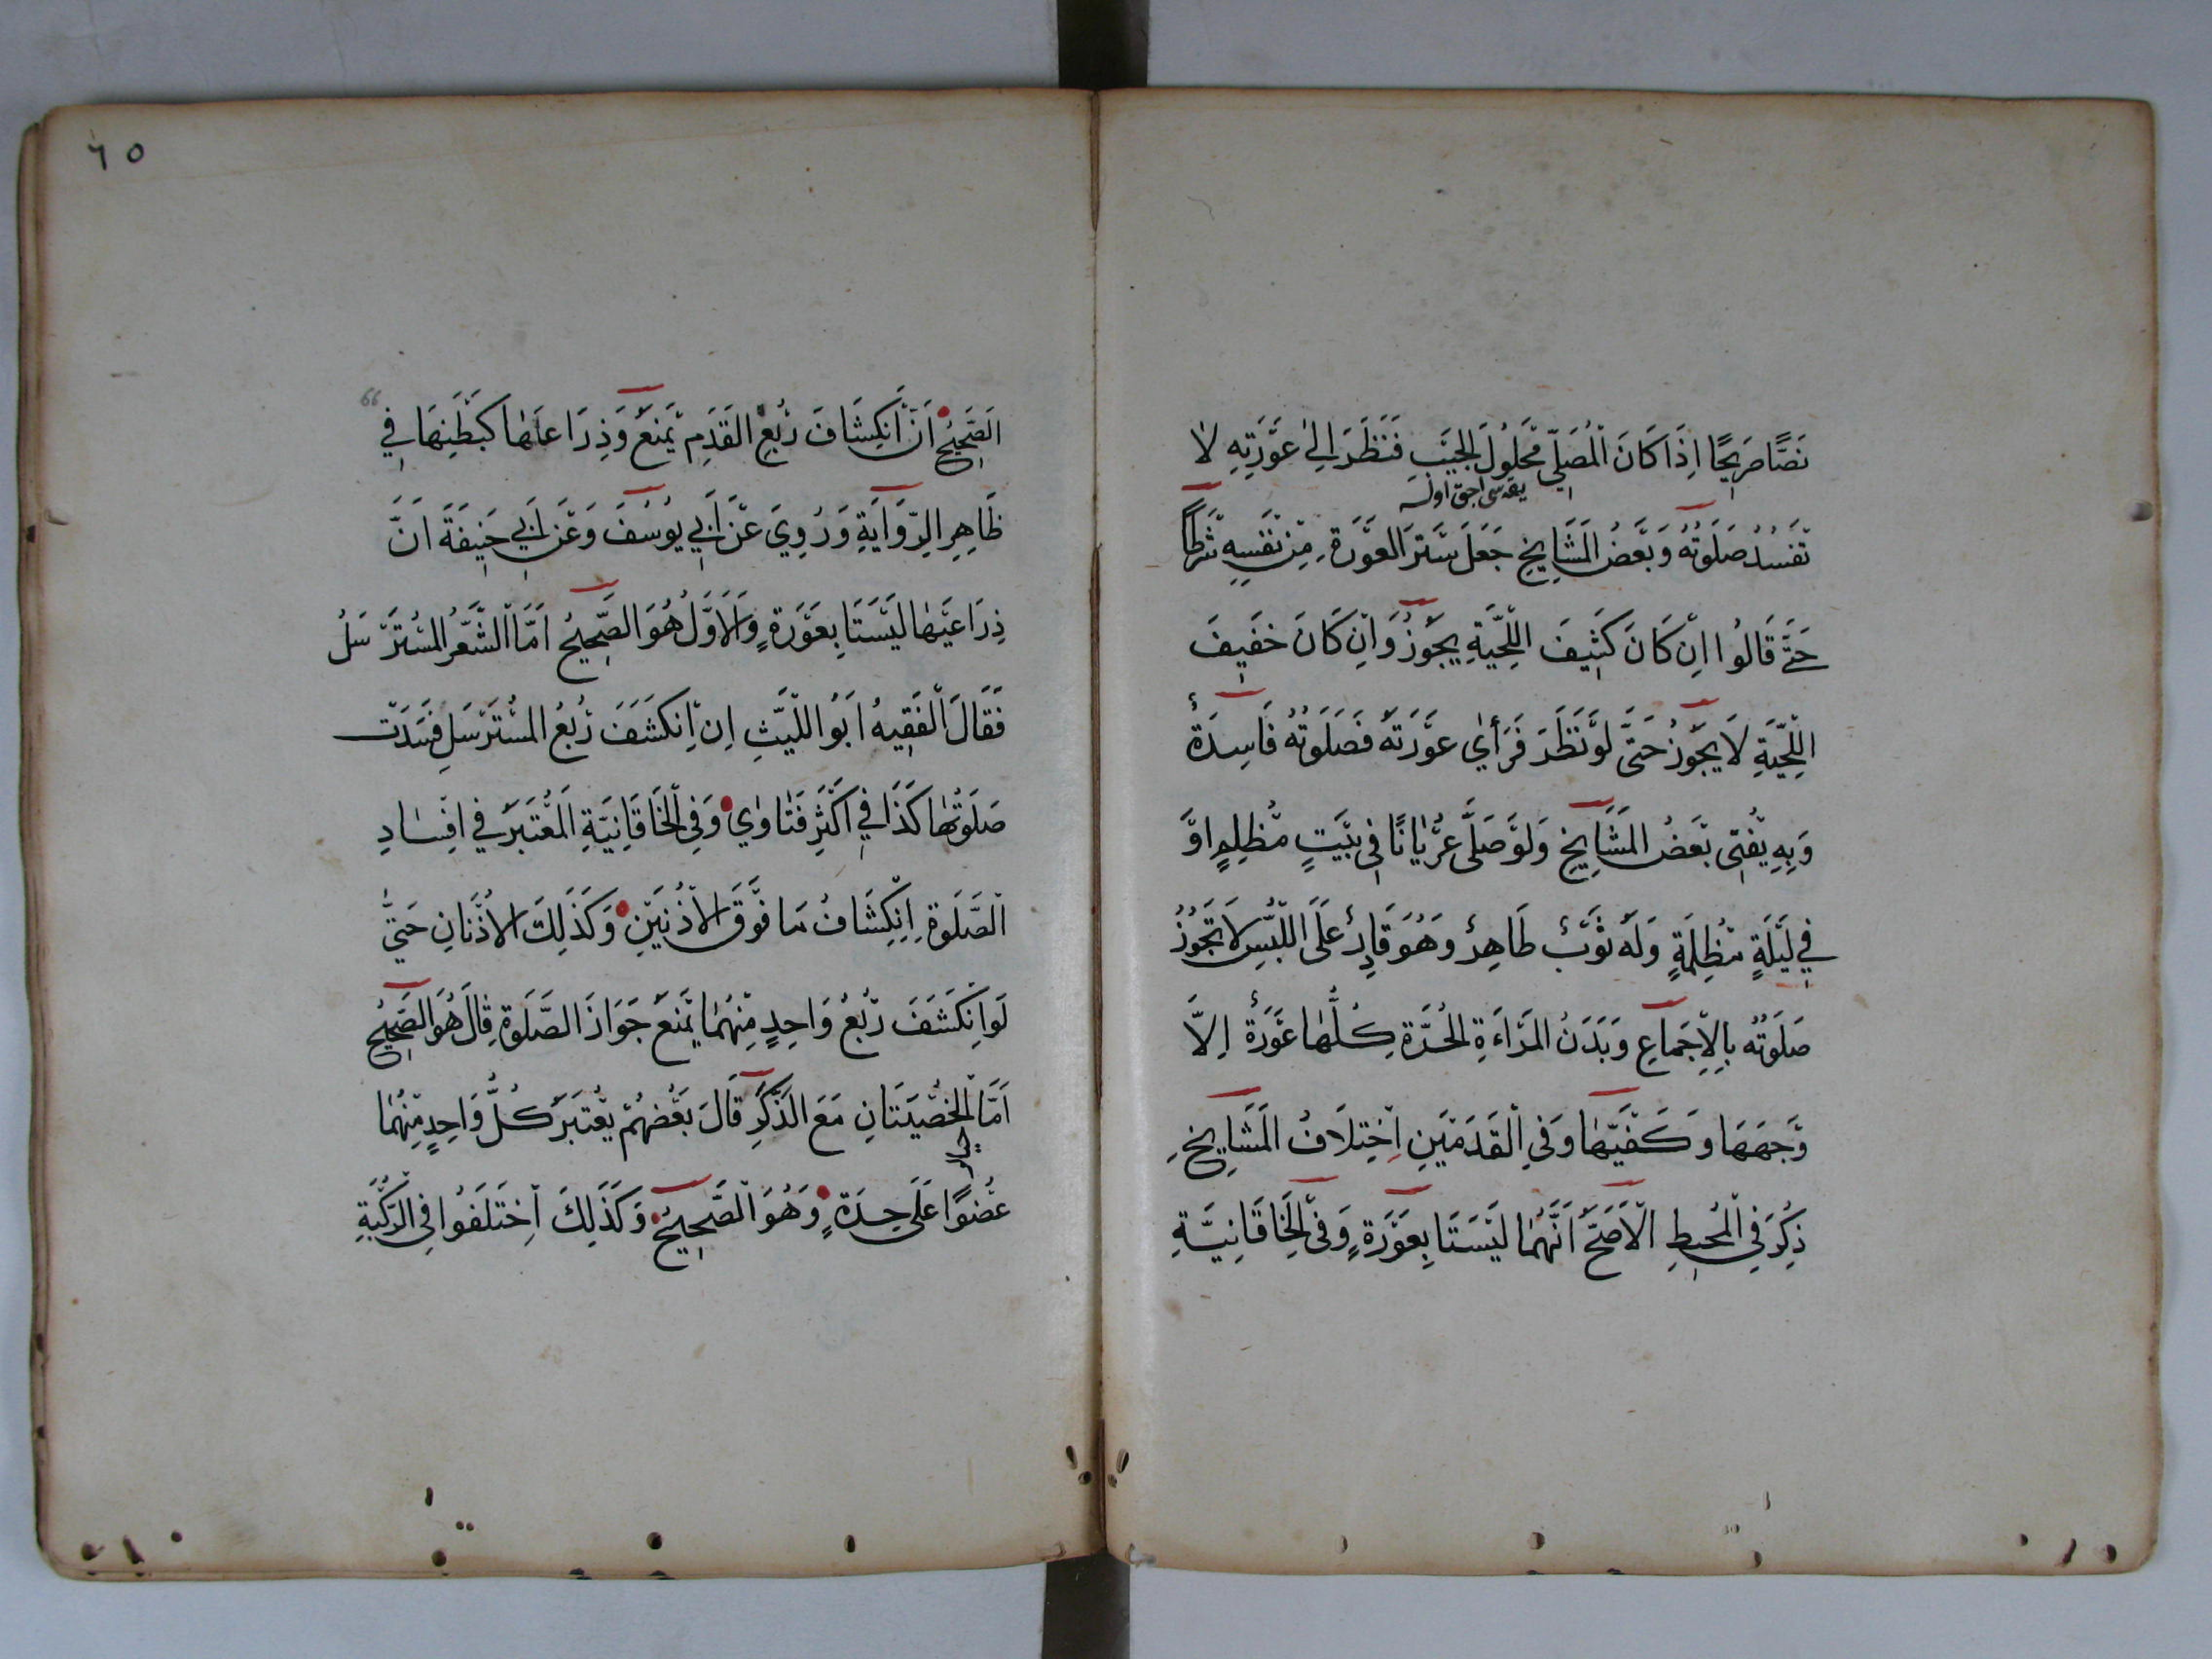 نَصًّا صَرِيحًا اِذَا كَانَ الْمُصَلِّي مَحْلُولَ الْجَيْبِ فَنَظَرَ اِلٰى عَوْرَتِهِ لَا
يقه سی اجق اولسه
تَفْسُدُ صَلَوتُهُ وَبَعْضُ الْمَشَايِخِ جَعَلَ سَتْرَ الْعَوْرَةِ مِنْ نَفْسِهِ شَرْطًا
حَتَّى قَالُوا اِنْ كَانَ كَثِيفَ اللِّحْيَةِ يَجُوزُ وَاِنْ كَانَ خَفِيفَ
اللِّحْيَةِ لَا يَجُوزُ حَتَّى لَوْ نَظَرَ فَرَأَي عَوْرَتَهُ فَصَلَوتُهُ فَاسِدَةٌ
وَبِهِ يُفْتِى بَعْضُ الْمَشَايِخِ وَلَوْ صَلَّى عُرْيَانًا فِى بَيْتٍ مُظْلِمٍ اَوْ
فِي لَيْلَةٍ مُظْلِمَةٍ وَلَهُ ثَوْبٌ طَاهِرٌ وَهُوَ قَادِرٌ عَلَى اللُّبْسِ لَا تَجُوزُ
صَلَوتُهُ بِالْاِجْمَاعِ وَبَدَنُ الْمَرْاَةِ الْحُرَّةِ كُلُّهَا عَوْرَةٌ اِلَّا
وَجْهَهَا وَكَفَّيْهَا وَفِي الْقَدَمَيْنِ اِخْتِلَافُ الْمَشَايِخِ
ذُكِرَ فِي الْمُحِيطِ الْاَصَحُّ اَنَّهُمَا لَيْسَتَا بِعَوْرَةٍ وَفِى الْخَاقَانِيَّةِ
٦٥
66
اَلصَّحِيحُ اَنَّ اِنْكِشَافَ رُبُعِ الْقَدَمِ يَمْنَعُ وَذِرَاعَاهَا كَبَطْنِهَا فِي
ظَاهِرِ الرِّوَايَةِ وَرُوِيَ عَنْ اَبِي يُوسُفَ وَعَنْ اَبِي حَنِيفَةَ اَنَّ
ذِرَاعَيْهَا لَيْسَتَا بِعَوْرَةٍ وَالْاَوَّلُ هُوَ الصَّحِيحُ اَمَّا الشَّعْرُ الْمُسْتَرْسَلُ
فَقَالَ الْفَقِيهُ اَبُو اللَّيْثِ اِنْ اِنْكَشَفَ رُبُعُ الْمُسْتَرْسَلِ فَسَدَتْ
صَلَوتُهَا كَذَا فِي اَكْثَرِ فَتَاوٰي وَفِى الْخَاقَانِيَّةِ اَلْمُعْتَبَرُ فِي اِفْسَادِ
الصَّلَوةِ اِنْكِشَافُ مَا فَوْقَ الْاُذْنَيْنِ وَكَذَلِكَ الْاُذْنَانِ حَتَّى
لَوِ انْكَشَفَ رُبُعُ وَاحِدٍ مِنْهُمَا يَمْنَعُ جَوَازَ الصَّلَوةِ قَالَ هُوَ الصَّحِيحُ
اَمَّا الْخُصْيَتَانِ مَعَ الذَّكَرِ قَالَ بَعْضُهُمْ يُعْتَبَرُ كُلُّ وَاحِدٍ مِنْهُمَا
عُضْوًا عَلَى حِدَةٍ وَهُوَ الصَّحِيحُ وَكَذَلِكَ اِخْتَلَفُوا فِى الرُّكْبَةِ